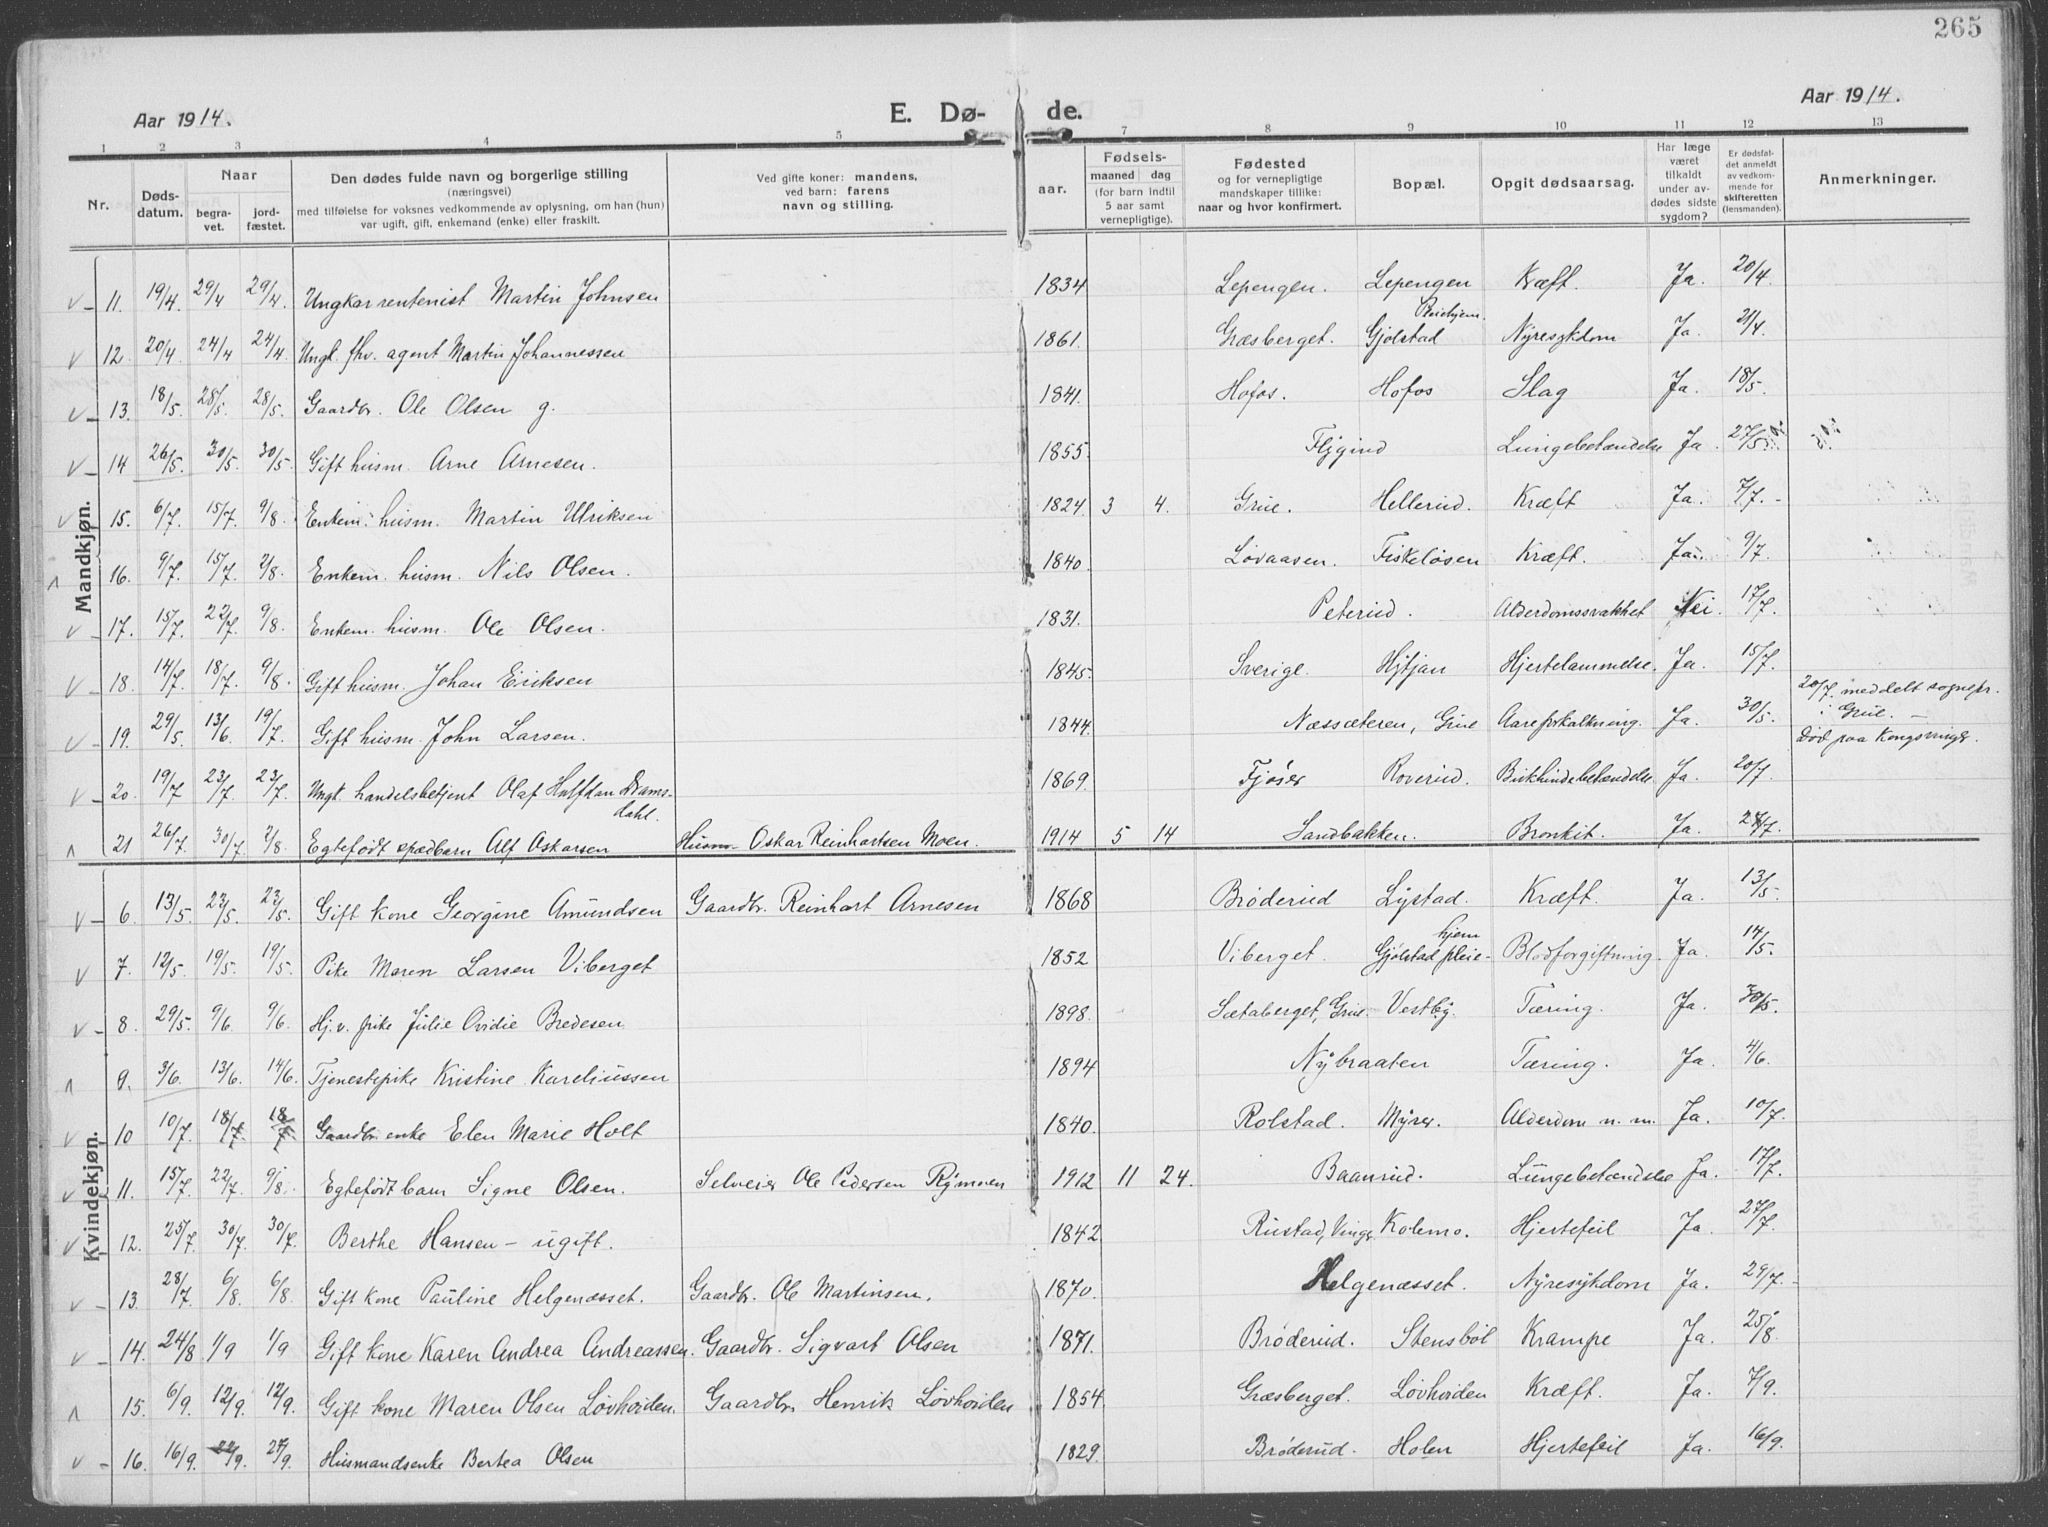 265
Aar 1914. E. Dø- de. Aar 1914.
1 2 3 4 5 6 7 8 9 10 11 12 13
Nr. Døds-datum. Naar begra-vet. jord-fæstet. Den dødes fulde navn og borgerlige stilling (næringsvei) med tilføielse for voksnes vedkommende av oplysning, om han (hun) var ugift, gift, enkemand (enke) eller fraskilt. Ved gifte koner: mandens, ved barn: farens navn og stilling. aar. Fødsels- maaned dag (for barn indtil 5 aar samt vernepligtige). Fødested og for vernepligtige mandskaper tillike: naar og hvor konfirmert. Bopæl. Opgit dødsaarsag. Har læge været tilkaldt under av-dødes sidste sygdom? Er dødsfal-det anmeldt av vedkom-mende for skifteretten (lensmanden). Anmerkninger.
Mandkjøn.
11. 19/4 29/4 29/4. Ungkar rentenist Martin Johnsen 1834 Lepengen. Lepengen Kræft. Ja. 20/4
12. 20/4 24/4 24/4. Ungk. fhv. agent Martin Johannessen 1861. Græsberget. Gjølstad Pleiehjem. Nyresykdom Ja. 21/4
13. 18/5. 28/5. 28/5. Gaardbr. Ole Olsen g. 1841. Hofos. Hofos Slag Ja. 18/5.
14 26/5. 30/5. 30/5. Gift husm. Arne Arnesen. 1855. Flygind Lungebetændelse Ja. 27/5
15. 6/7. 15/7. 9/8. Enkem. husm. Martin Ulriksen 1824 3 4. Grue. Hellerud. Kræft Ja. 7/7.
16. 9/7. 15/7. 2/8. Enkem. husm. Nils Olsen. 1840. Løvaasen. Fiskeløsen Kræft. Ja. 9/7.
17. 15/7. 22/7. 9/8. Enkem. husm. Ole Olsen. 1831. Peterud. Alderdomssvakhet Nei. 17/7.
18. 14/7. 18/7. 9/8. Gift husm. Johan Eriksen 1845. Sverige. Hytjan Hjertelammelse. Ja. 15/7.
19. 29/5. 13/6 19/7. Gift husm. John Larsen. 1844. Næssæteren, Grue Aareforkalkning. Ja. 30/5. 20/7. meddelt sognepr. i Grue. –
20. 19/7 23/7. 23/7. Ungk. handelsbetjent Olaf Halfdan Dramsdahl. 1869. Fjøser Roverud. Bukhindebetændelse Ja. 20/7. Død paa Kongsvinger.
21 26/7. 30/7. 2/8. Egtefødt spædbarn Alf Oskarsen Husm. Oskar Reinhartsen Moen. 1914 5 14 Sandbakken. Bronkit. Ja. 27/7.
Kvindekjøn.
6. 13/5. 23/5. 23/5. Gift kone Georgine Amundsen Gaardbr. Reinhart Arnesen 1868 Brøderud Lystad. Kræft. Ja. 13/5.
7. 12/5. 19/5. 19/5. Pike Maren Larsen Viberget 1852 Viberget. Gjølstad pleie-hjem Blodforgiftning. Ja. 14/5.
8. 29/5. 9/6. 9/6. Hj. v. pike Julie Ovidie Bredesen 1898. Sætaberget, Grue Vestby. Tæring. Ja. 30/5.
9. 3/6. 13/6. 14/6. Tjenestepike Kristine Kareliussen 1894 Nybraaten Tæring. Ja. 4/6.
10 10/7. 18/7. 18/7 Gaardbr. enke Elen Marie Holt 1840. Rolstad. Myrer. Alderdom m. m. Ja. 10/7.
11. 15/7. 22/7. 9/8. Egtefødt barn Signe Olsen. Selveier Ole Pedersen Rymoen 1912 11 24. Baanrud. Lungebetændelse Ja. 17/7.
12. 25/7. 30/7. 30/7. Berthe Hansen – ugift. 1842 Rustad, Vinger Kolemo. Hjertefeil Ja. 27/7.
13. 28/7. 6/8. 6/8. Gift kone Pauline Helgenæsset. Gaardbr. Ole Martinsen. 1870. Helgenæsset. Nyresykdom Ja. 29/7.
14. 24/8 1/9 1/9 Gift kone Karen Andrea Andreassen. Gaardbr. Sigvart Olsen 1871. Brøderud. Stensbøl Krampe Ja. 25/8.
15. 6/9. 12/9. 12/9. Gift kone Maren Olsen Løvhøiden. Gaardbr. Henrik Løvhøiden 1854. Græsberget. Løvhøiden Kræft. Ja. 7/9.
16. 16/9. 27/9. 27/9. Husmandsenke Bertea Olsen 1829. Brøderud. Holen Hjertefeil Ja. 16/9.